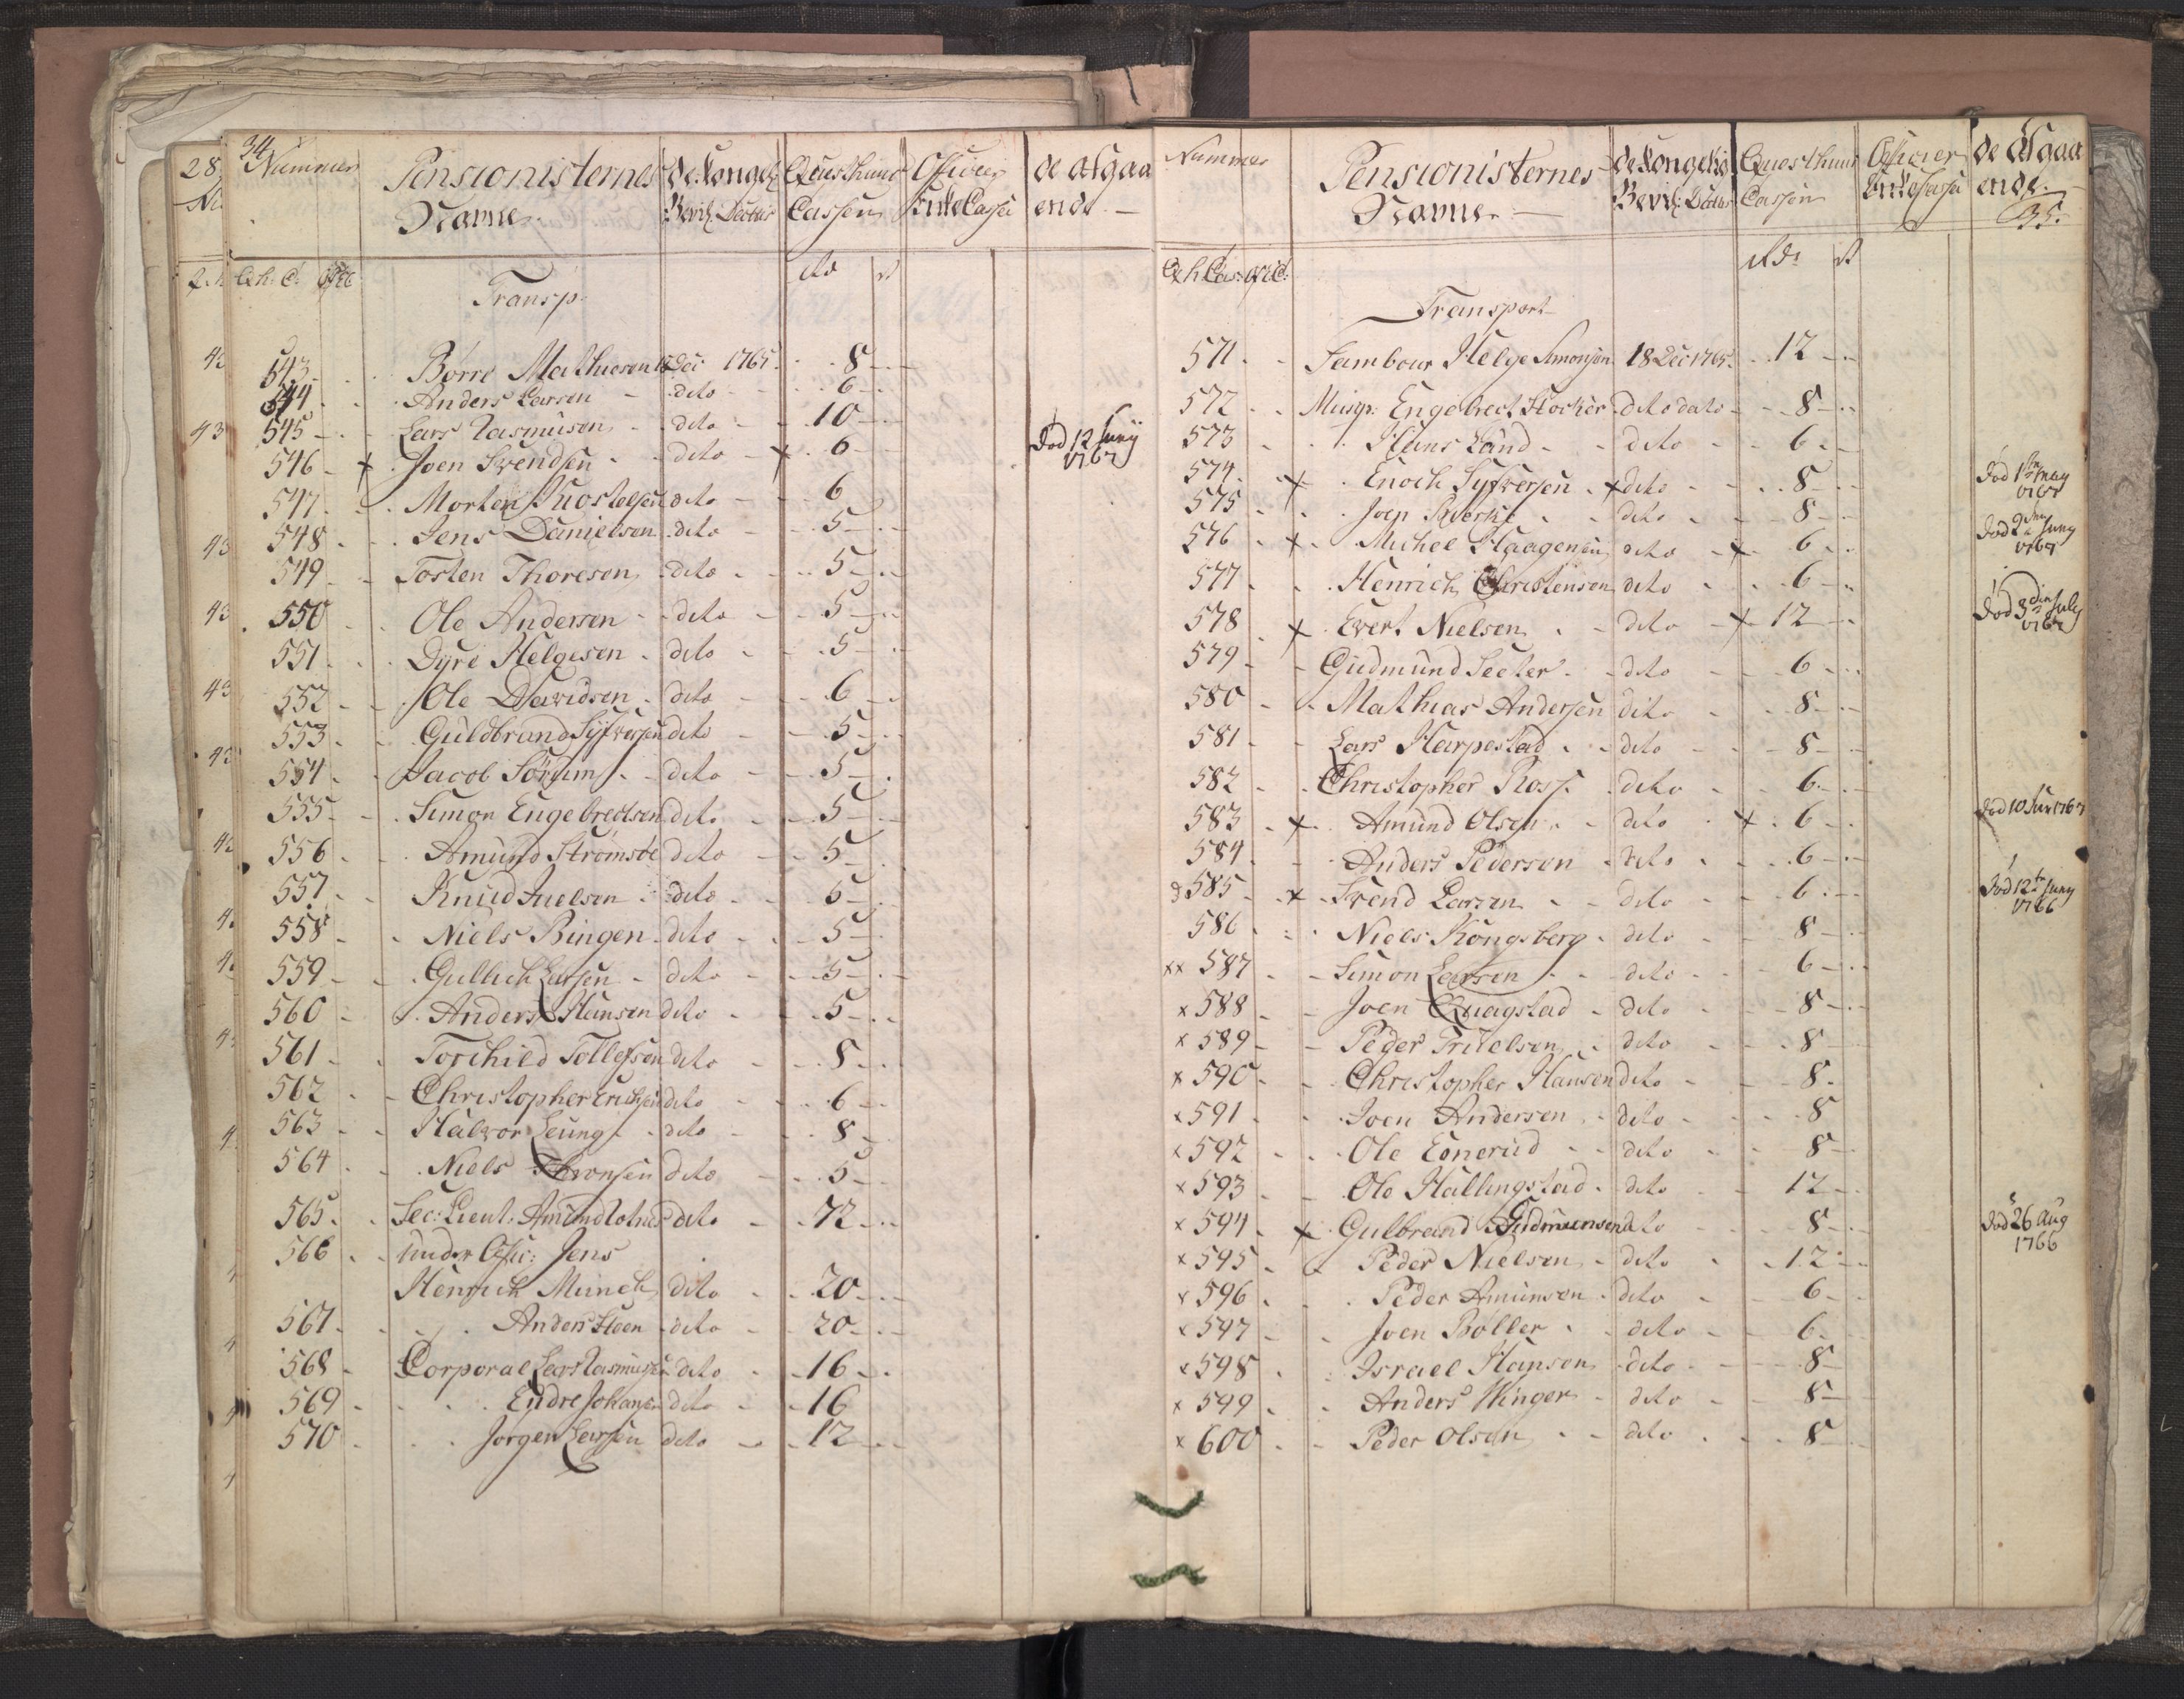 34
Nummer Pensionisternes de Kongel: Quæsthuus Officier de afgaa
Navne Bevil: Datus Cassen EnkeCassa ende
Q.h. C: Rd
Transp.
543 Børre Mathiesen 18 Dec 1765 8
544 Anders Larsen dito 6
545 Lars Rasmusen dito 10
546 x Joen Svendsen dito x 6 død 12 Junij 1767
547 Morten dito 6
548 Jens Danielsen dito 5
549 Tosten Thoresen dito 5
550 Ole Andersen dito 5
551 Gyre Helgesen dito 5
552 Ole Davidsen dito 6
553 Guldbrand Syfversen dito 5
554 Jacob Sørum dito 5
555 Simon Engebrectsen dito 5
556 Amund Strømsøe dito 5
557 Knud Juelsen dito 5
558 Niels Bingen dito 5
559 Gullich Larsen dito 5
560 Anders Hansen dito 5
561 Torchild Tollefsen dito 8
562 Christopher Erichsen dito 6
563 Halvor Leung dito 8
564 Niels dito 5
565 Sec: Lieut: Amund dito 72
566 Under Offic: Jens
Henrich Munch dito 20
567 Anders Steen dito 20
568 Corporal Lars Rasmusen dito 16
569 Endre Johansen dito 16
570 Jørgen Larsen dito 12
Nummer Pensionisternes de Kongelig Quæsthuus Officier de Afgaa
Navne Bevil: Datus Cassen EnkeCassa ende
35.
Q h Cas: Rd:
Transport
571 Tambour Helge Simonsen 18 Dec 1765 12
572 Musq: Engebrect Stocker dito dato 8
573 Hans Land dito 6
574 x Enoch Syfversen x dito 8 død 1ste may 1767
575 Joen Sverke dito 8
576 x Michel Haagensen dito x 6 død 2den Juny 1767
577 Henrich Christensen dito 6
578 x Evert Nielsen dito x 12 død 3die July 1767
579 Gudmund Seeter dito 6
580 Mathias Andersen dito 8
581 Lars Harpestad dito 8
582 Christopher Ross dito 6
583 x Amund Olsen dito x 6 død 10 Jun 1767
584 Anders Pedersen dito 6
585 x Svend Larsen dito 6 død 12te Juny 1766
586 Niels Kongsberg dito 8
xx 587 Simon Larsen dito 6
x 588 Joen Quagstad dito 8
x 589 Peder Trulelsen dito 8
x 590 Christopher Hansen dito 8
x 591 Joen Andersen dito 8
x 592 Ole Eonerud dito 8
x 593 Ole Hallingstad dito 12
x 594 x Gulbrand Gudmunsen dito 8 død 26 Aug 1766
x 595 Peder Nielsen dito 12
x 596 Peder Amunsen dito 6
x 597 Joen Boller dito 6
x 598 Israel Hansen dito 8
x 599 Anders Winger dito 8
x 600 Peder Olsen dito 8